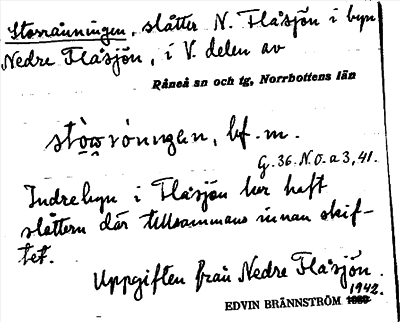 Storrånningen, slåtter N. Flåsjön i byn
Nedre Flåsjön, i V. delen av
Råneå sn och tg, Norrbottens län
bf. m.
G. 36. N. O. a 3, 41.
Indre byn i Flåsjön har haft
slåttern där tillsammans innan skif-
tet.
Uppgiften från Nedre Flåsjön.
1942.
EDVIN BRÄNNSTRÖM